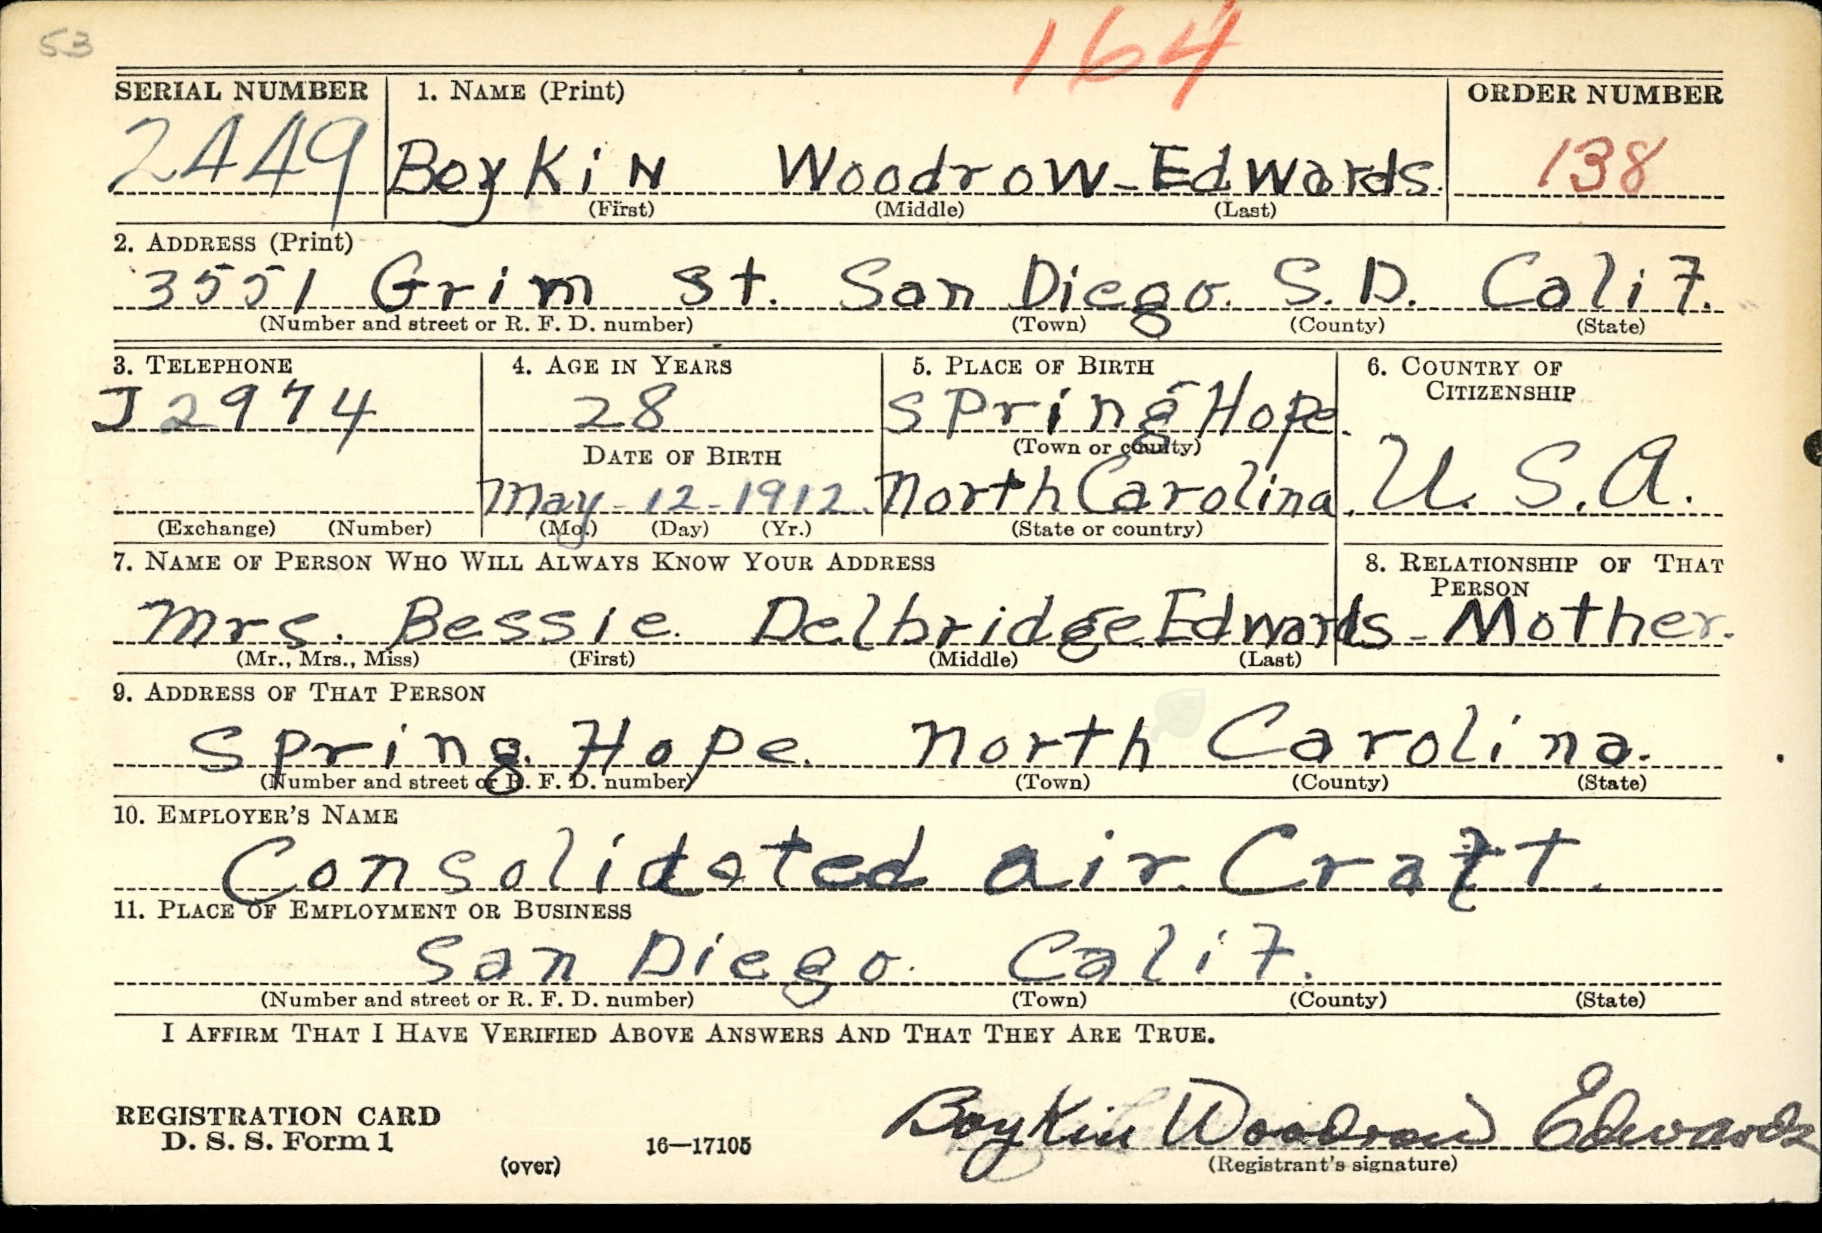 53
164
SERIAL NUMBER 1. NAME (Print) ORDER NUMBER
2449 Boykin Woodrow-Edwards. 138
(First) (Middle) (Last)
2. ADDRESS (Print)
3551 Grim St. San Diego. S. D. Calif.
(Number and street or R. F. D. number) (Town) (County) (State)
3. TELEPHONE 4. AGE IN YEARS 5. PLACE OF BIRTH 6. COUNTRY OF CITIZENSHIP
J 2974 28 Spring Hope.
(Town or county)
DATE OF BIRTH
May-12-1912. North Carolina. U. S. A.
(Exchange) (Number) (Mo.) (Day) (Yr.) (State or country)
7. NAME OF PERSON WHO WILL ALWAYS KNOW YOUR ADDRESS 8. RELATIONSHIP OF THAT PERSON
Mrs. Bessie. Delbridge Edwards - Mother.
(Mr., Mrs., Miss) (First) (Middle) (Last)
9. ADDRESS OF THAT PERSON
Spring. Hope. North Carolina.
(Number and street or R. F. D. number) (Town) (County) (State)
10. EMPLOYER'S NAME
Consolidated air Craft.
11. PLACE OF EMPLOYMENT OR BUSINESS
San Diego. Calif.
(Number and street or R. F. D. number) (Town) (County) (State)
I AFFIRM THAT I HAVE VERIFIED ABOVE ANSWERS AND THAT THEY ARE TRUE.
REGISTRATION CARD
D. S. S. Form 1 16—17105 Boykin Woodrow Edwards
(over) (Registrant's signature)